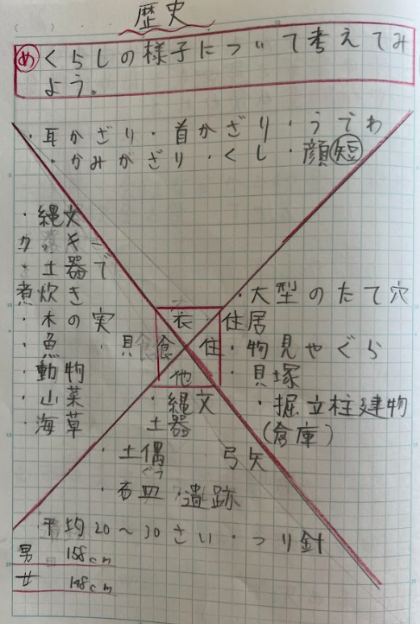 歴史
め くらしの様子について考えてみ
よう。
・耳かざり・首かざり・うでわ
・かみかざり・くし・顔短
・縄文
クッキー
・土器で
煮炊き
・木の実
・魚・貝
・動物
・山菜
・海草
衣
食 住
他
・大型のたて穴
住居
・物見やぐら
・貝塚
・掘立柱建物
(倉庫)
・縄文
土器
・土偶 弓矢
ぐう
・石皿・遺跡
・平均20〜30さい・つり針
男 158cm
女 148cm